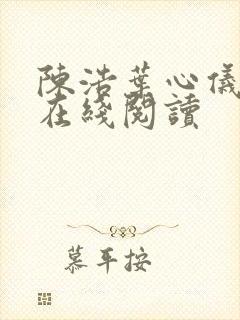 陳浩葉心儀
在綫閱讀
慕平按